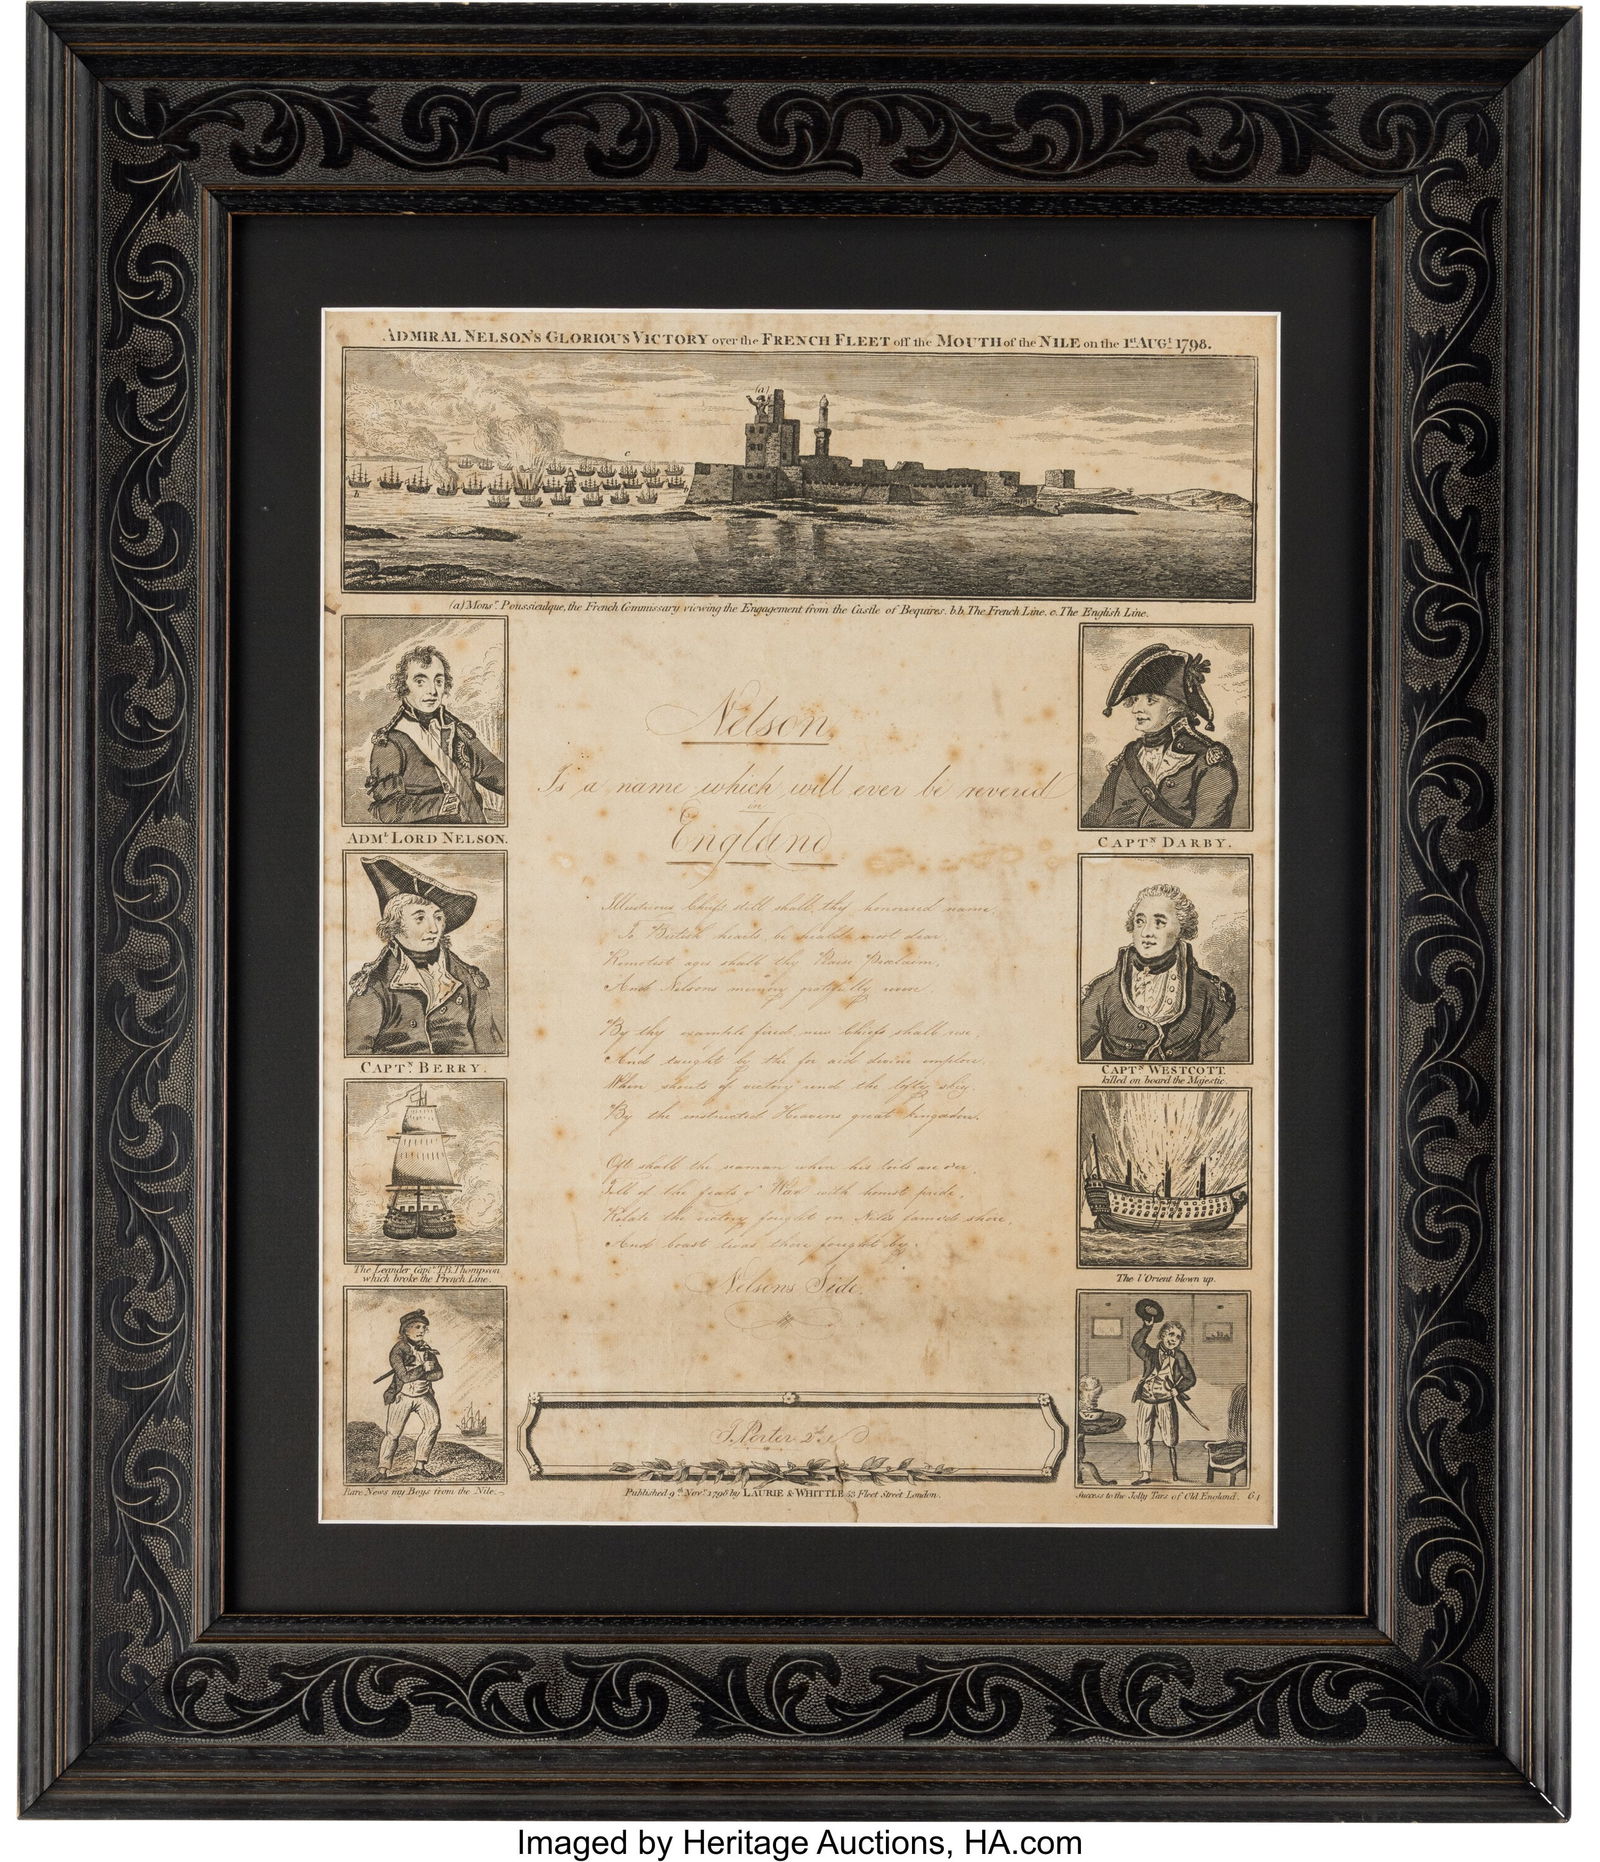 ADMIRAL NELSON'S GLORIOUS VICTORY over the FRENCH FLEET off the MOUTH of the NILE on the 1st AUGt 1798.
(a)
b
c
c
(a) Monsr. Poussieulque, the French Commissary viewing the Engagement from the Castle of Bequires. b.b. The French Line. c. The English Line.
ADML LORD NELSON.
CAPTN BERRY.
The Leander Captn T.B. Thompson
which broke the French Line.
Rare News my Boys from the Nile.
Nelson
Is a name which will ever be revered
in
England
Illustrious Chief still shall thy honoured name,
To British hearts be most dear,
Remotest ages shall thy Praise Proclaim,
And Nelsons memory gratefully revere.
By thy example fired new Chiefs shall rise,
And taught by the for aid divine implore,
When shouts of victory rend the lofty skies.
By the instructed Heavens great
Oft shall the seaman when his toils are o'er,
Tell of the feats o' War with honest pride,
Relate the victory fought on Niles famed shore,
And boast twas there fought by
Nelsons Side.
J. Porter
Published 9th Novr 1798 by LAURIE & WHITTLE 53 Fleet Street London.
CAPTN DARBY.
CAPTN WESTCOTT.
killed on board the Majestic.
The l'Orient blown up.
Success to the Jolly Tars of Old England.
Imaged by Heritage Auctions, HA.com